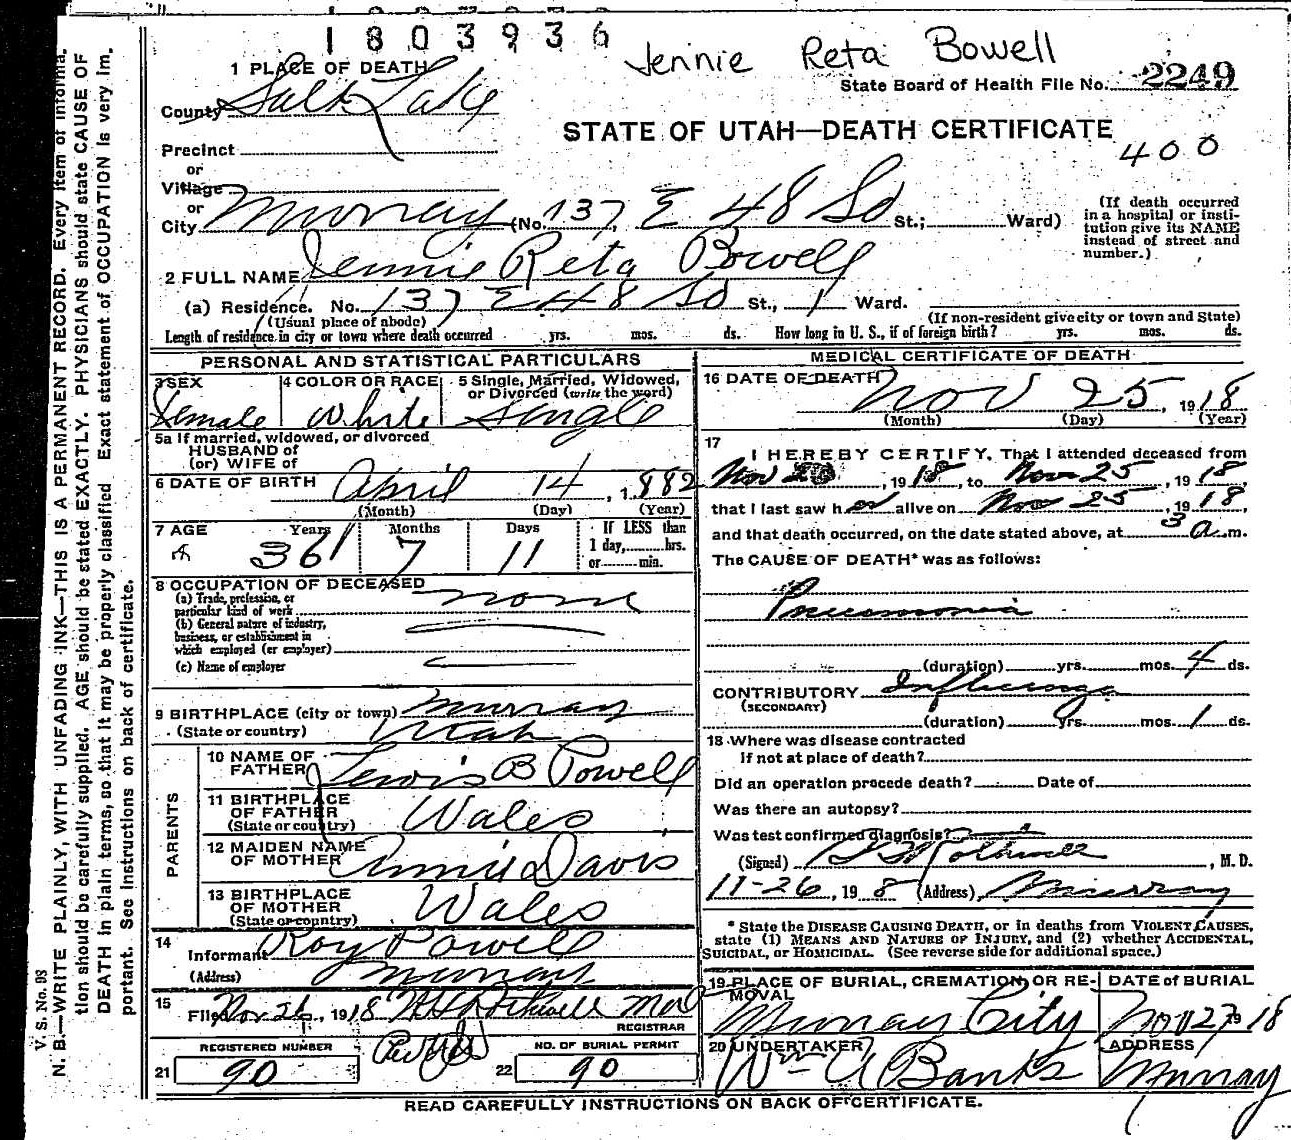 1803936
Jennie Reta Bowell
1 PLACE OF DEATH
State Board of Health File No. 2249
County Salt Lake
STATE OF UTAH—DEATH CERTIFICATE
400
Precinct
or
Village
or
City Murray (No. 137, E 48 So St.; Ward)
(If death occurred in a hospital or institution give its NAME instead of street and number.)
2 FULL NAME Jennie Reta Powell
(a) Residence. No. 137 E 48 So St., 1 Ward.
(Usual place of abode) (If non-resident give city or town and State)
Length of residence in city or town where death occurred yrs. mos. ds. How long in U. S., if of foreign birth? yrs. mos. ds.
PERSONAL AND STATISTICAL PARTICULARS
3 SEX 4 COLOR OR RACE 5 Single, Married, Widowed, or Divorced (write the word)
Female White Single
5a If married, widowed, or divorced
HUSBAND of
(or) WIFE of
6 DATE OF BIRTH April 14, 1882
(Month) (Day) (Year)
7 AGE Years Months Days If LESS than
36 7 11 1 day, hrs.
or min.
8 OCCUPATION OF DECEASED
(a) Trade, profession, or particular kind of work none
(b) General nature of industry, business, or establishment in which employed (or employer)
(c) Name of employer
9 BIRTHPLACE (city or town) Murray
(State or country) Utah
PARENTS
10 NAME OF FATHER Lewis B Powell
11 BIRTHPLACE OF FATHER
(State or country) Wales
12 MAIDEN NAME OF MOTHER Annie Davis
13 BIRTHPLACE OF MOTHER
(State or country) Wales
14 Informant Roy Powell
(Address) Murray
15 Filed Nov 26, 1918
REGISTRAR
REGISTERED NUMBER NO. OF BURIAL PERMIT
21 90 22 90
MEDICAL CERTIFICATE OF DEATH
16 DATE OF DEATH Nov 25, 1918
(Month) (Day) (Year)
17 I HEREBY CERTIFY, That I attended deceased from
Nov 20, 1918, to Nov 25, 1918,
that I last saw her alive on Nov 25, 1918,
and that death occurred, on the date stated above, at 3 a. m.
The CAUSE OF DEATH* was as follows:
Pneumonia
(duration) yrs. mos. 4 ds.
CONTRIBUTORY Influenza
(SECONDARY)
(duration) yrs. mos. 1 ds.
18 Where was disease contracted
If not at place of death?
Did an operation precede death? Date of
Was there an autopsy?
Was test confirmed diagnosis?
(Signed) Rothwell, M. D.
11-26, 19 8 (Address) Murray
* State the DISEASE CAUSING DEATH, or in deaths from VIOLENT CAUSES,
state (1) MEANS AND NATURE OF INJURY, and (2) whether ACCIDENTAL,
SUICIDAL, or HOMICIDAL. (See reverse side for additional space.)
19 PLACE OF BURIAL, CREMATION, OR REMOVAL DATE of BURIAL
Murray City Nov 27 1918
20 UNDERTAKER ADDRESS
Wm A Banks Murray
READ CAREFULLY INSTRUCTIONS ON BACK OF CERTIFICATE.
V. S. No. 98
N. B.—WRITE PLAINLY, WITH UNFADING INK—THIS IS A PERMANENT RECORD. Every item of informa-
tion should be carefully supplied. AGE should be stated EXACTLY. PHYSICIANS should state CAUSE OF
DEATH in plain terms, so that it may be properly classified Exact statement of OCCUPATION is very im-
portant. See instructions on back of certificate.